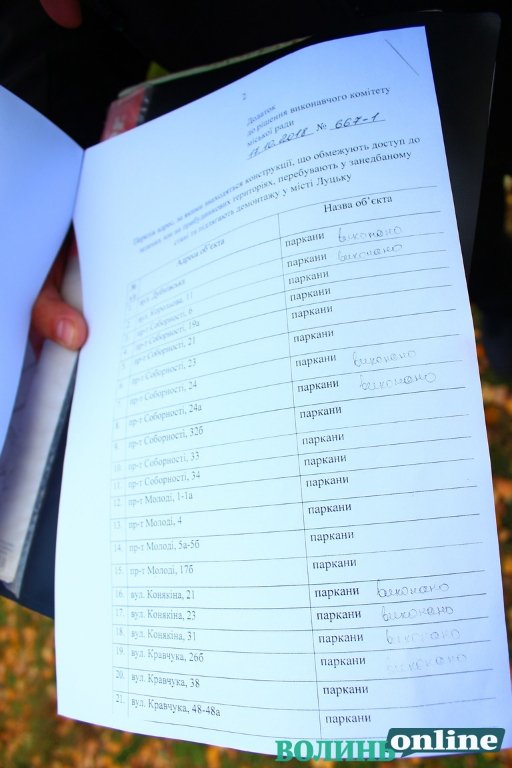 2
Додаток
до рішення виконавчого комітету
міської ради
17.10.2018 № 667-1
Перелік адрес за якими знаходяться конструкції, що обмежують доступ до
зелених зон на прибудинкових територіях, перебувають у занедбаному
стані та підлягають демонтажу у місті Луцьку
№ Адреса об'єкта Назва об'єкта
1. вул. Дубнівська паркани виконано
2. вул. Корольова, 11 паркани виконано
3. пр-т Соборності, 6 паркани
4. пр-т Соборності, 19а паркани
5. пр-т Соборності, 21 паркани
6. пр-т Соборності, 23 паркани
7. пр-т Соборності, 24 паркани виконано
8. пр-т Соборності, 24а паркани виконано
9. пр-т Соборності, 32б паркани
10. пр-т Соборності, 33 паркани
11. пр-т Соборності, 34 паркани
12. пр-т Молоді, 1-1а паркани
13. пр-т Молоді, 4 паркани
14. пр-т Молоді, 5а-5б паркани
15. пр-т Молоді, 17б паркани
16. вул. Конякіна, 21 паркани виконано
17. вул. Конякіна, 23 паркани виконано
18. вул. Конякіна, 31 паркани виконано
19. вул. Кравчука, 26б паркани виконано
20. вул. Кравчука, 38 паркани
21. вул. Кравчука, 48-48а паркани
ВОЛИНЬ online